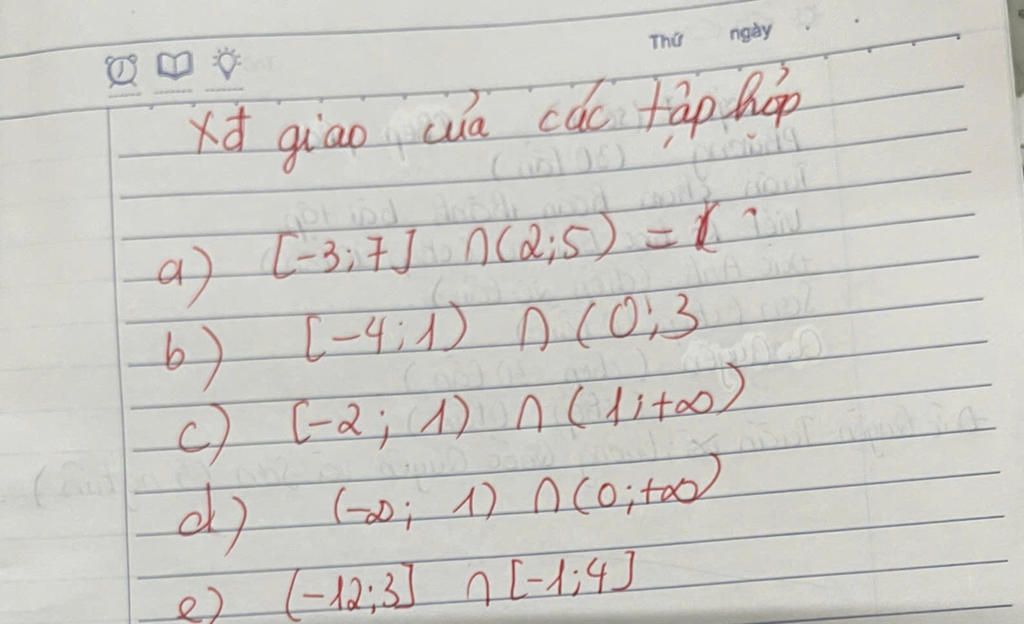 Thứ ngày
Xđ giao của các tập hợp
a) [-3;7] ∩ (2;5) = (
b) [-4;1) ∩ (0;3
c) [-2; 1) ∩ (1;+∞)
d) (-∞; 1) ∩ (0;+∞)
e) (-12;3] ∩ [-1;4]